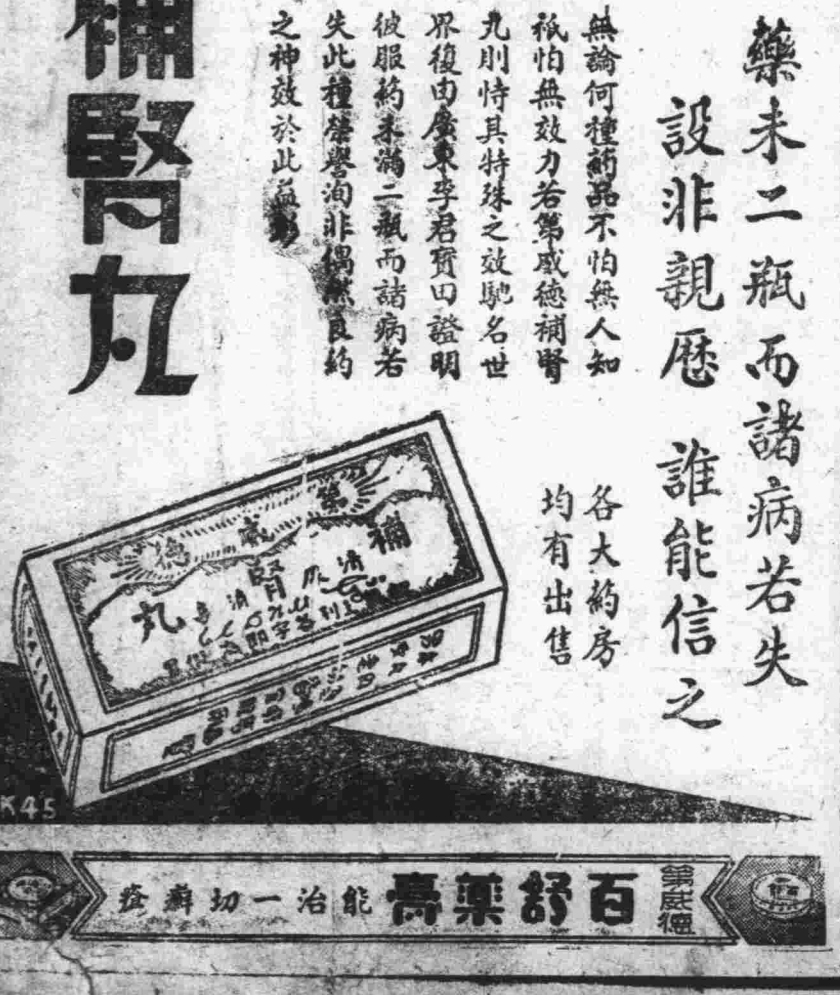 藥未二瓶而諸病若失
設非親歷 誰能信之
無論何種葯品不怕無人知
祇怕無效力若第威德補腎
丸則恃其特殊之效馳名世
界復由廣東李君寶田證明
彼服葯未滿二瓶而諸病若
失此種榮譽洵非偶然良葯
之神效於此益彰
各大葯房
均有出售
補腎丸
第威德
補腎丸
K45
第威德
百舒藥膏
能治一切癬瘡